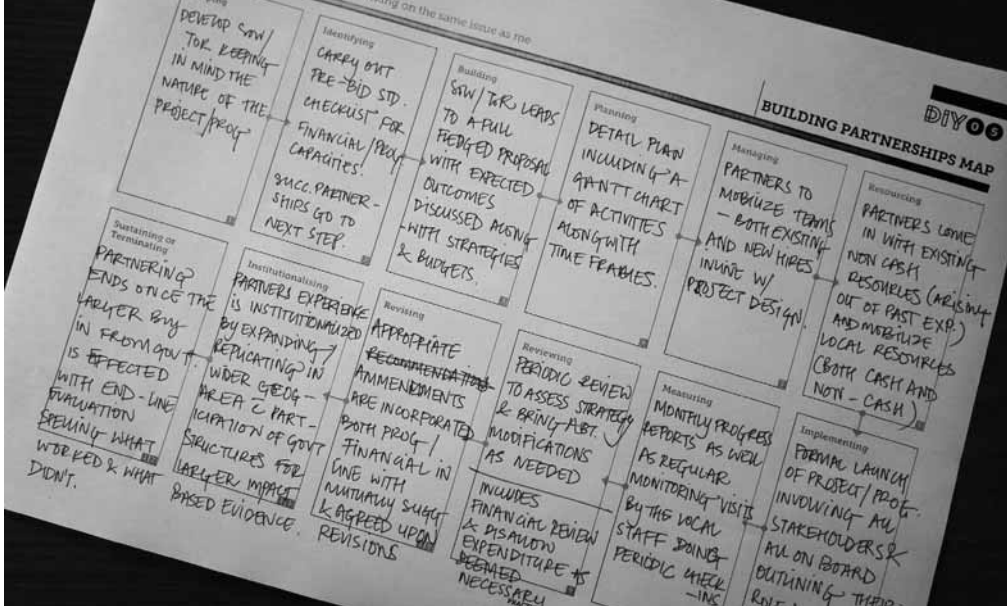 ing on the same issue as me
BUILDING PARTNERSHIPS MAP
DIY
DEVELOP SOW/
TOR KEEPING
IN MIND THE
NATURE OF THE
PROJECT/PROG
Identifying
CARRY OUT
PRE-BID STD.
CHECKLIST FOR
FINANCIAL/PROG
CAPACITIES.
SUCC. PARTNER-
SHIPS GO TO
NEXT STEP.
Building
SOW/TOR LEADS
TO A FULL
FLEDGED PROPOSAL
WITH EXPECTED
OUTCOMES
DISCUSSED ALONG
-WITH STRATEGIES
& BUDGETS.
Planning
DETAIL PLAN
INCLUDING A
GANTT CHART
OF ACTIVITIES
ALONGWITH
TIME FRAMES.
Managing
PARTNERS TO
MOBILIZE TEAMS
- BOTH EXISTING
AND NEW HIRES
INLINE W/
PROJECT DESIGN.
Resourcing
PARTNERS COME
IN WITH EXISTING
NON CASH
RESOURCES (ARISING
OUT OF PAST EXP.)
AND MOBILIZE
LOCAL RESOURCES
(BOTH CASH AND
NON-CASH)
Sustaining or
Terminating
PARTNERING
ENDS ONCE THE
LARGER BUY
IN FROM GOVT.
IS EFFECTED
WITH END-LINE
EVALUATION
SPELLING WHAT
WORKED & WHAT
DIDN'T.
Institutionalising
PARTNERS EXPERIENCE
IS INSTITUTIONALIZED
BY EXPANDING/
REPLICATING IN
WIDER GEOG-
AREA C PART-
ICIPATION OF GOVT
STRUCTURES FOR
LARGER IMPACT
BASED EVIDENCE.
Revising
APPROPRIATE
RECOMMENDATIONS
AMMENDMENTS
ARE INCORPORATED
BOTH PROG/
FINANCIAL IN
LINE WITH
MUTUALLY SUGG
& AGREED UPON
REVISIONS
Reviewing
PERIODIC REVIEW
TO ASSESS STRATEGY
& BRING ABT.
MODIFICATIONS
AS NEEDED
INCLUDES
FINANCIAL REVIEW
& DISALLOW
EXPENDITURE AS
DEEMED
NECESSARY
Measuring
MONTHLY PROGRESS
REPORTS AS WELL
AS REGULAR
MONITORING VISITS
BY THE LOCAL
STAFF DOING
PERIODIC CHECK
-INS
Implementing
FORMAL LAUNCH
OF PROJECT/PROG.
INVOLVING ALL
STAKEHOLDERS &
ALL ON BOARD
OUTLINING THEIR